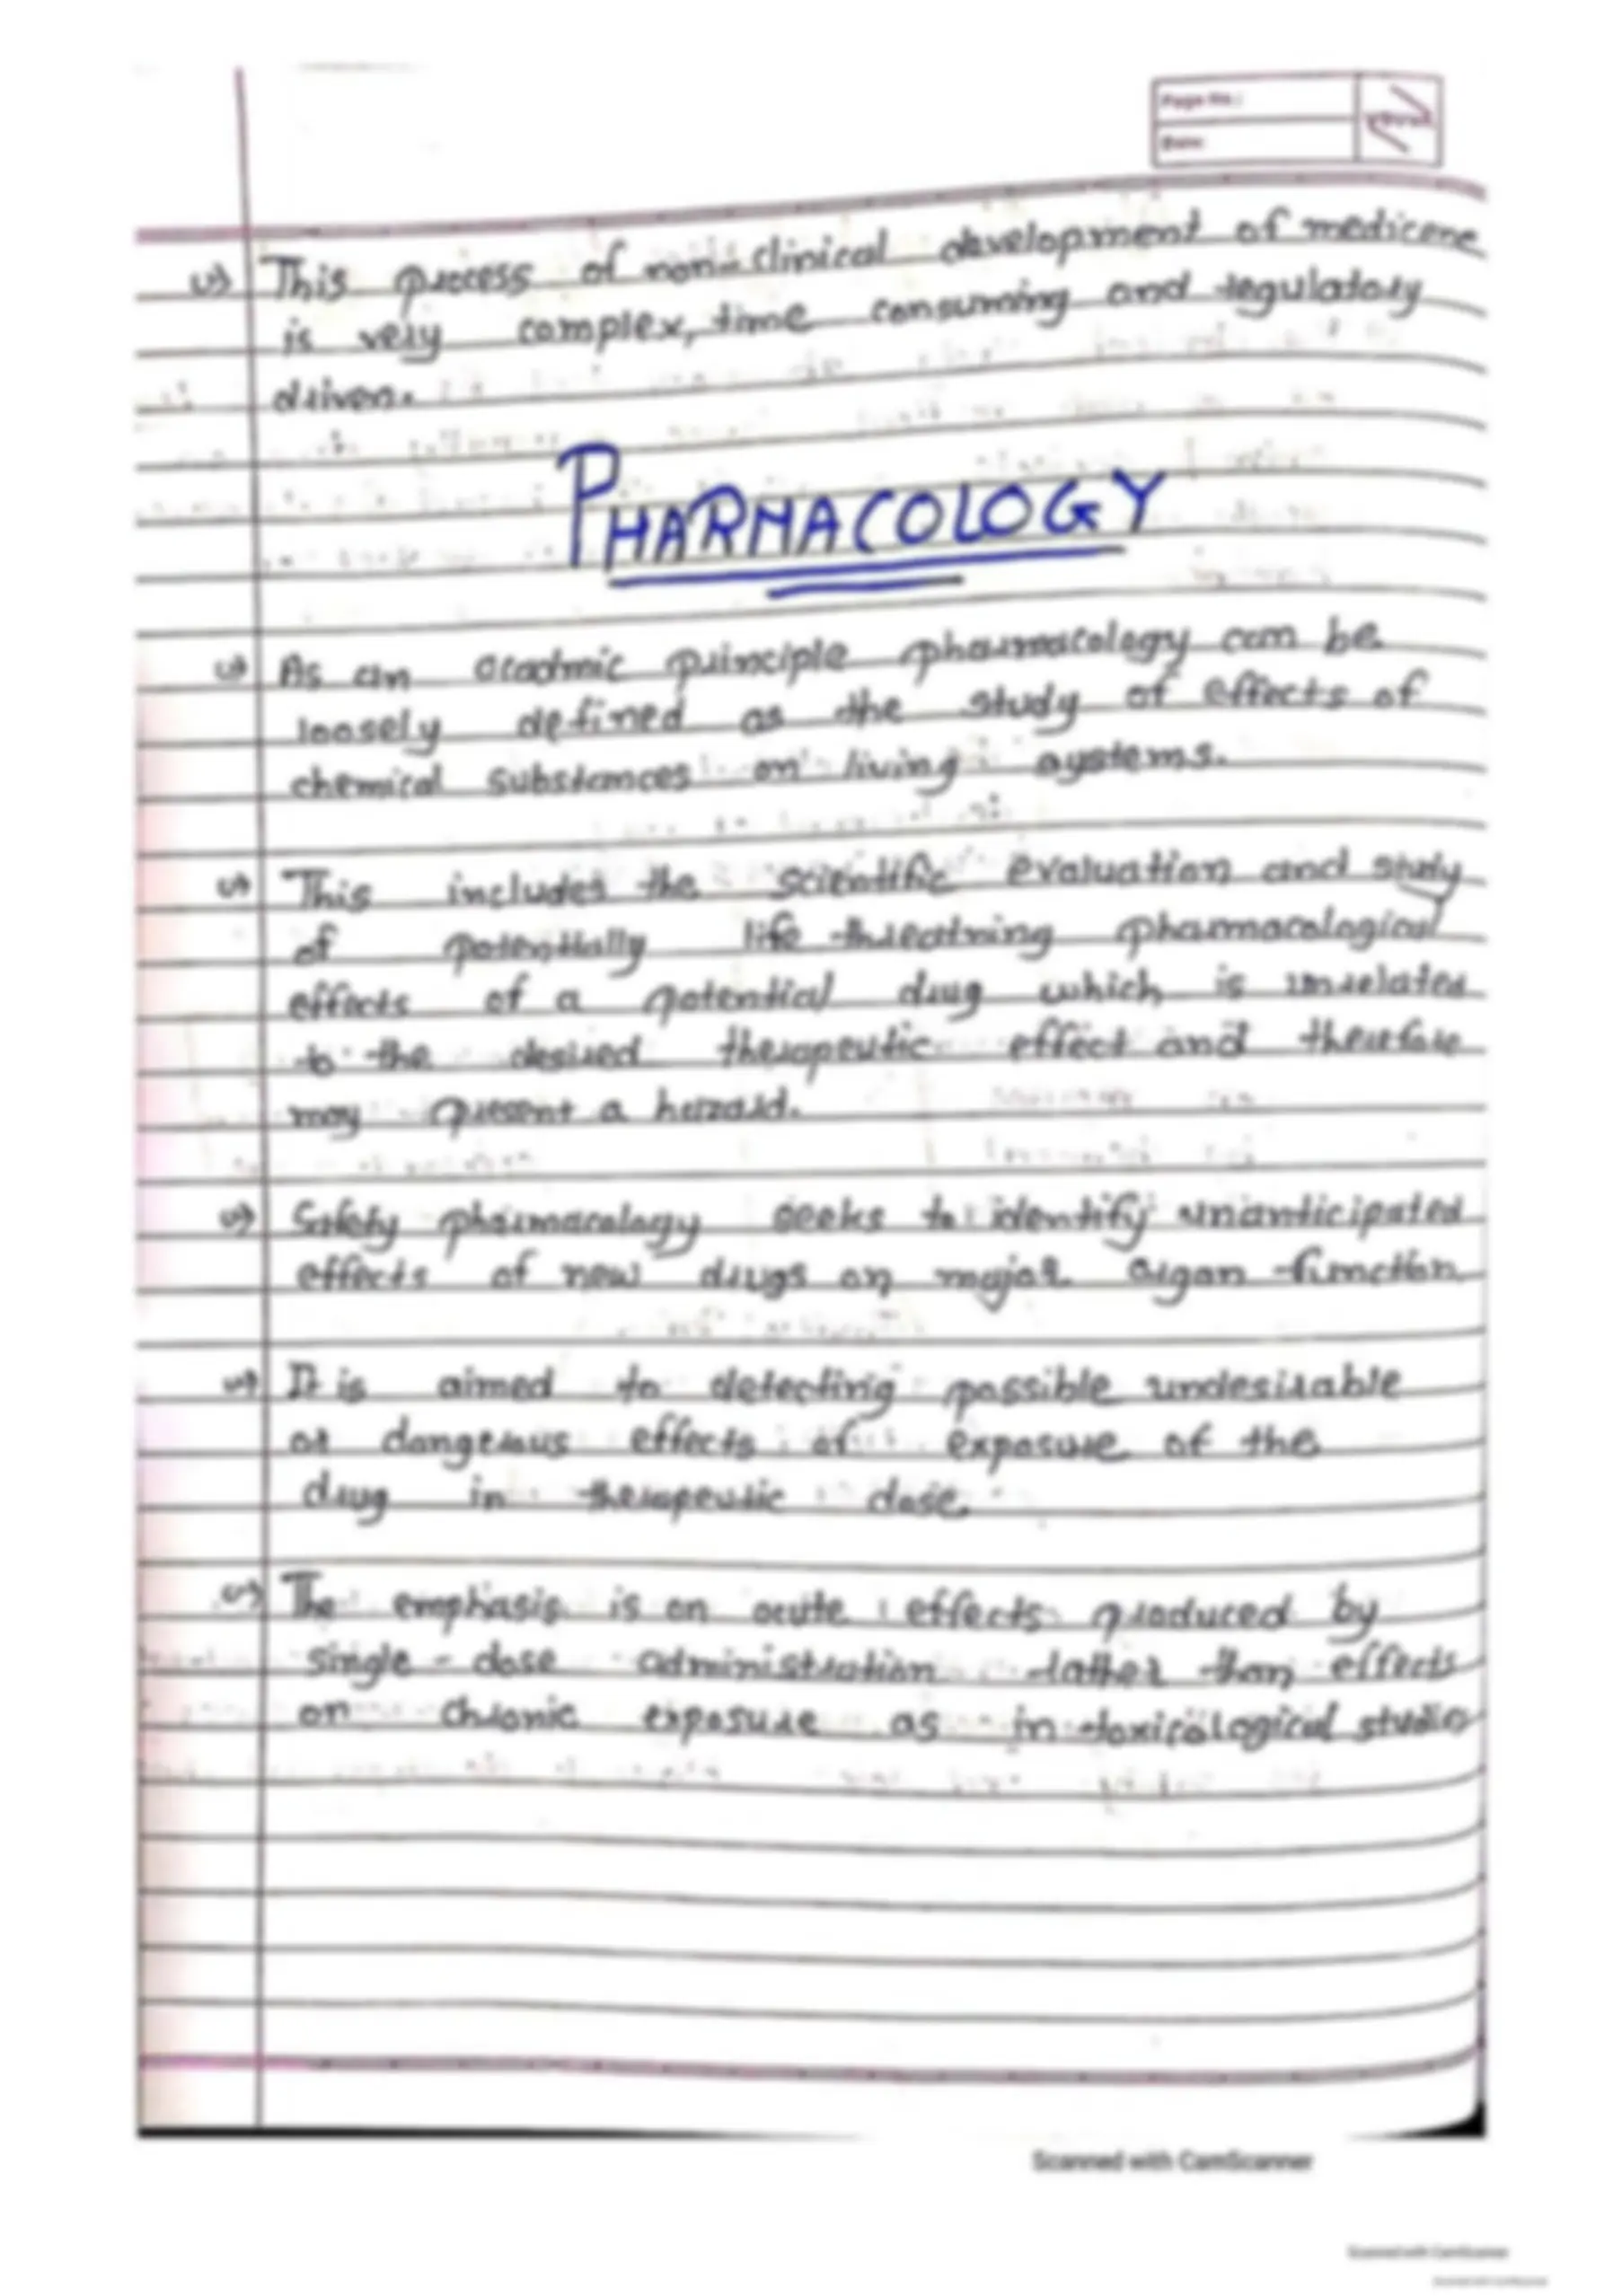 Page No.:
Date:
This process of non-clinical development of medicene
is very complex, time consuming and regulatory
driven.
PHARMACOLOGY
As an acadmic principle pharmacology can be
loosely defined as the study of effects of
chemical substances on living systems.
This includes the scientific evaluation and study
of potentially life-threatning pharmacological
effects of a potential drug which is unrelated
to the desired therapeutic effect and therefore
may present a hazard.
Safety pharmacology seeks to identify unanticipated
effects of new drugs on major organ function.
It is aimed to detecting possible undesirable
or dangerous effects of exposure of the
drug in therapeutic dose.
The emphasis is on acute effects produced by
single-dose administration rather than effects
on chronic exposure as in toxicological studies
Scanned with CamScanner
Scanned with CamScanner
Scanned with CamScanner